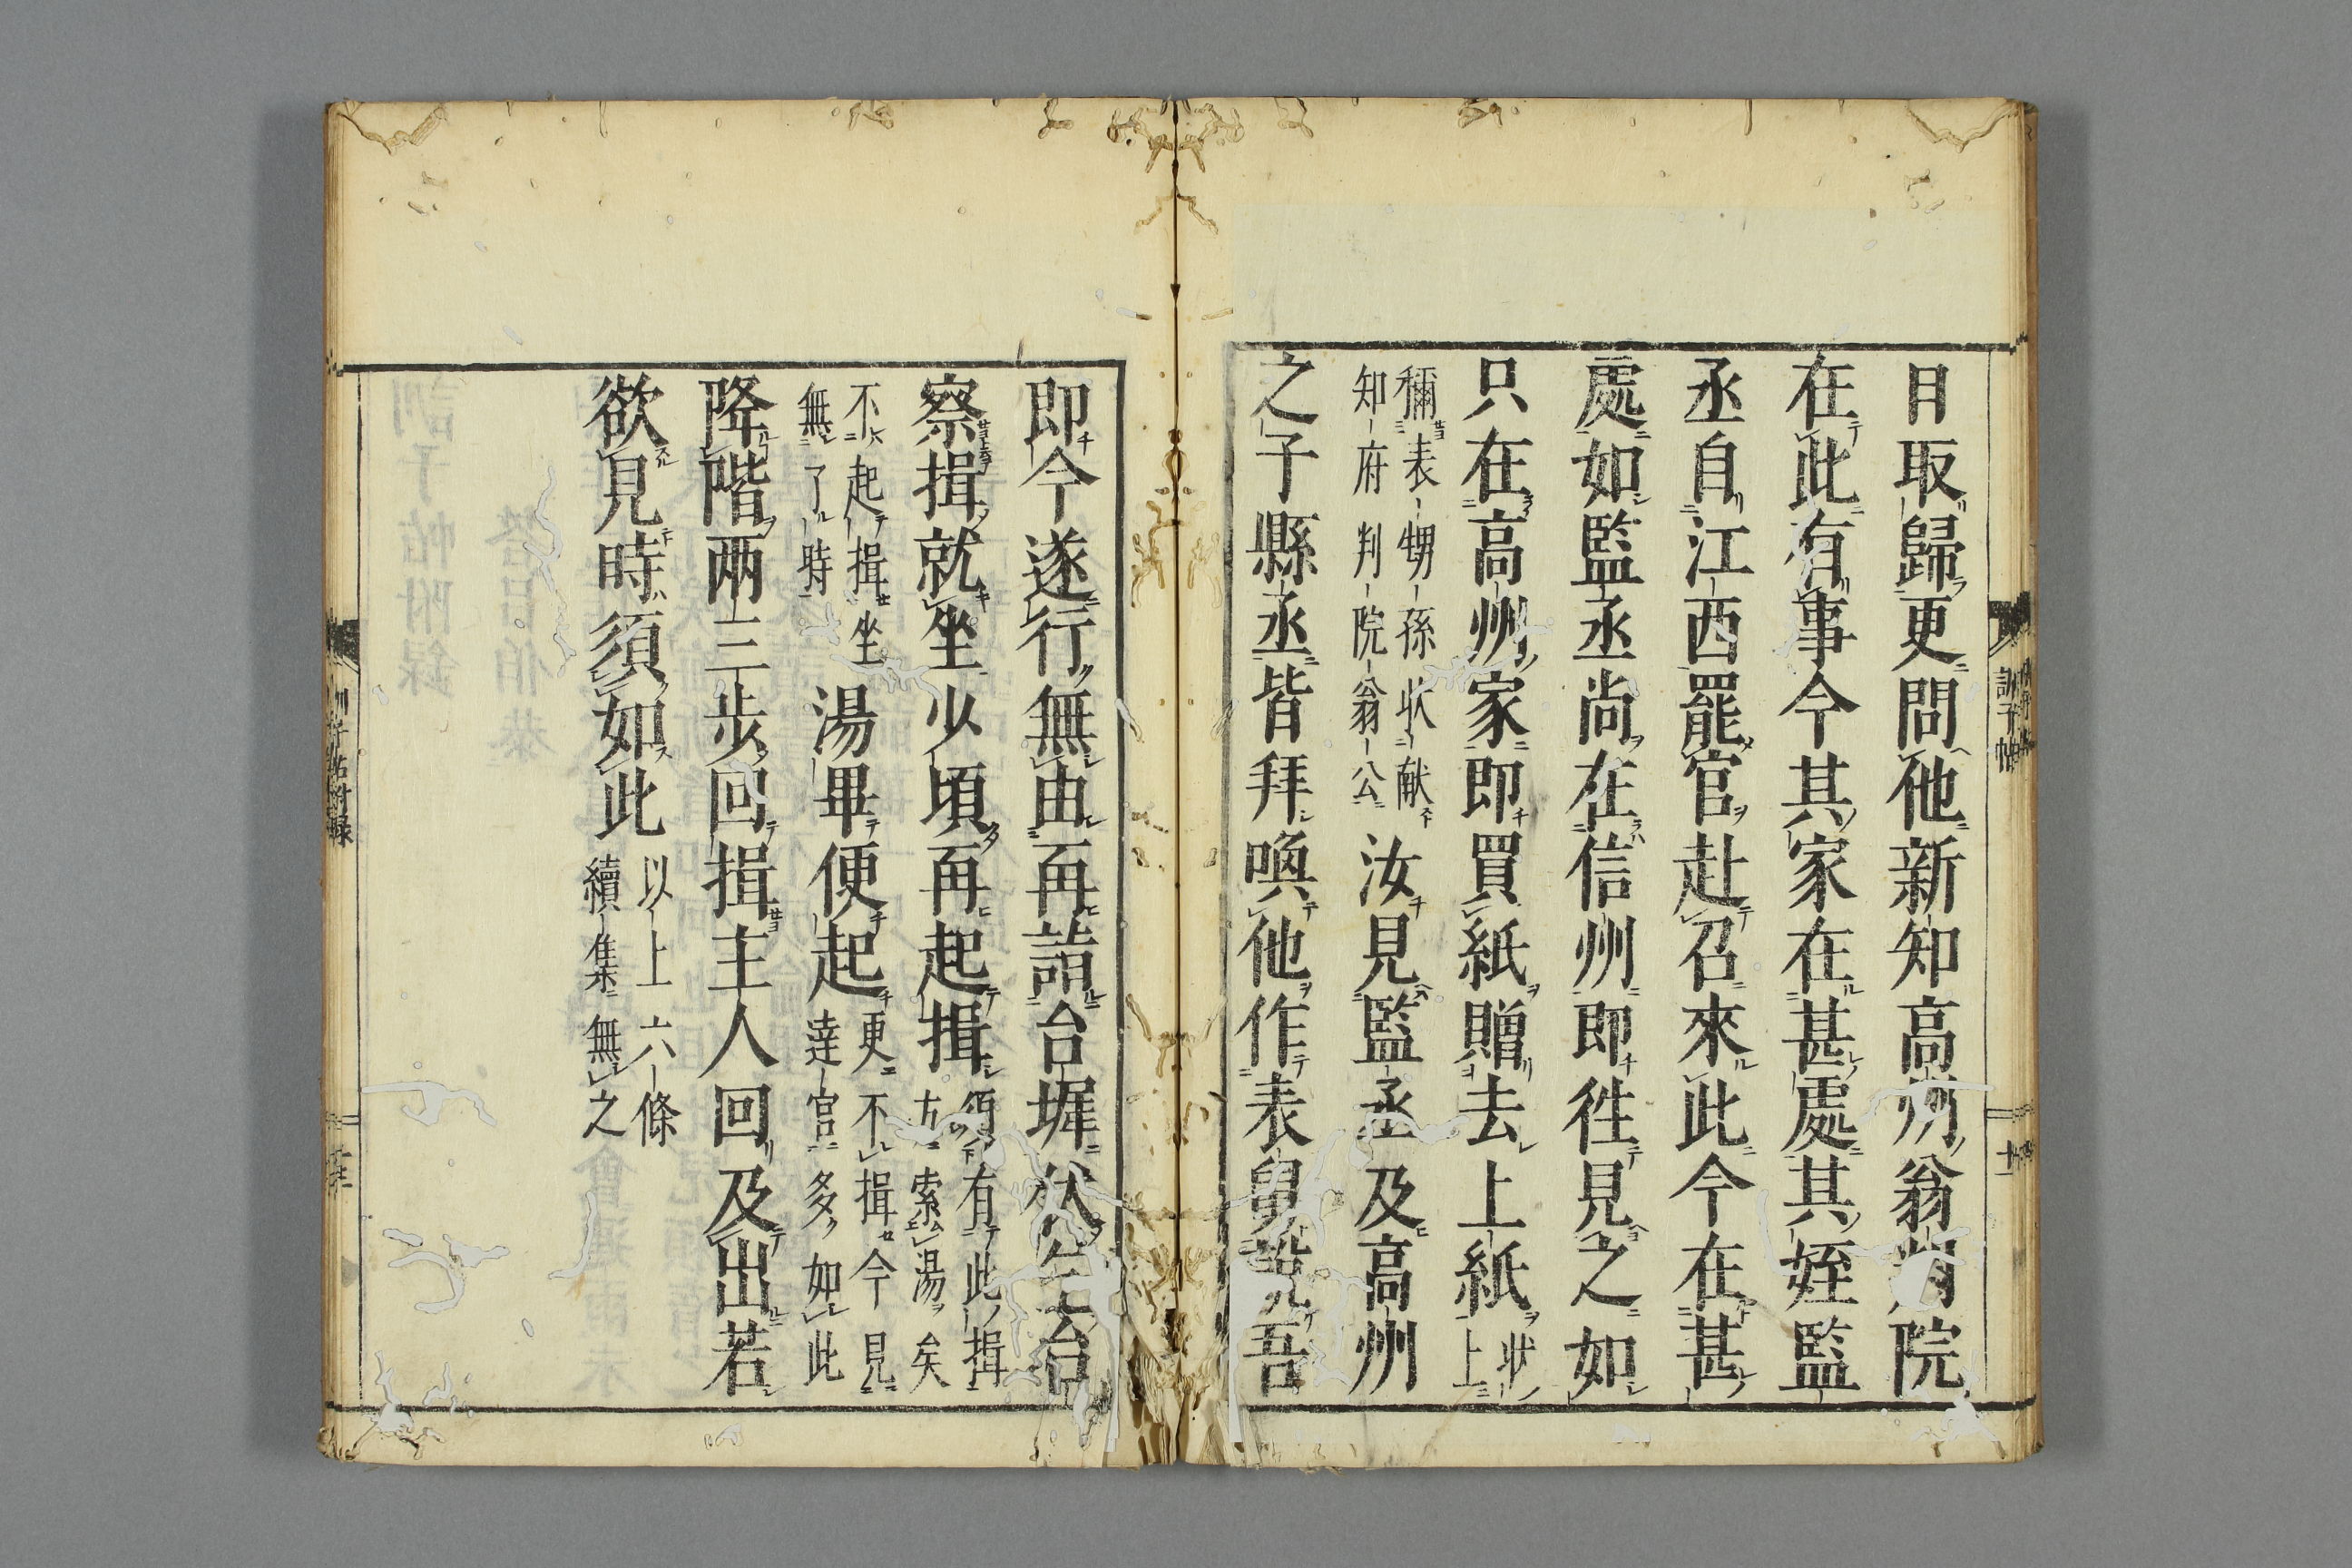 日取歸更問他新知高州翁判院
在此有事今其家在甚處其姪監
丞自江西罷官赴召來此今在甚
處如監丞尚在信州即徃見之如
只在高州家即買紙贈去上紙狀上
稱表甥孫狀献
知府判院翁公
汝見監丞及高州
之子縣丞皆拜喚他作表舅說吾
訓子帖
即今遂行無由再詣台墀伏乞台
察揖就坐少頃再起揖
須有此揖
方索湯矣
不起揖坐
無了時
湯畢便起
更不揖今見
達官多如此
降階两三步回揖主人回及出若
欲見時須如此
以上六條
續集無之
訓子帖附録